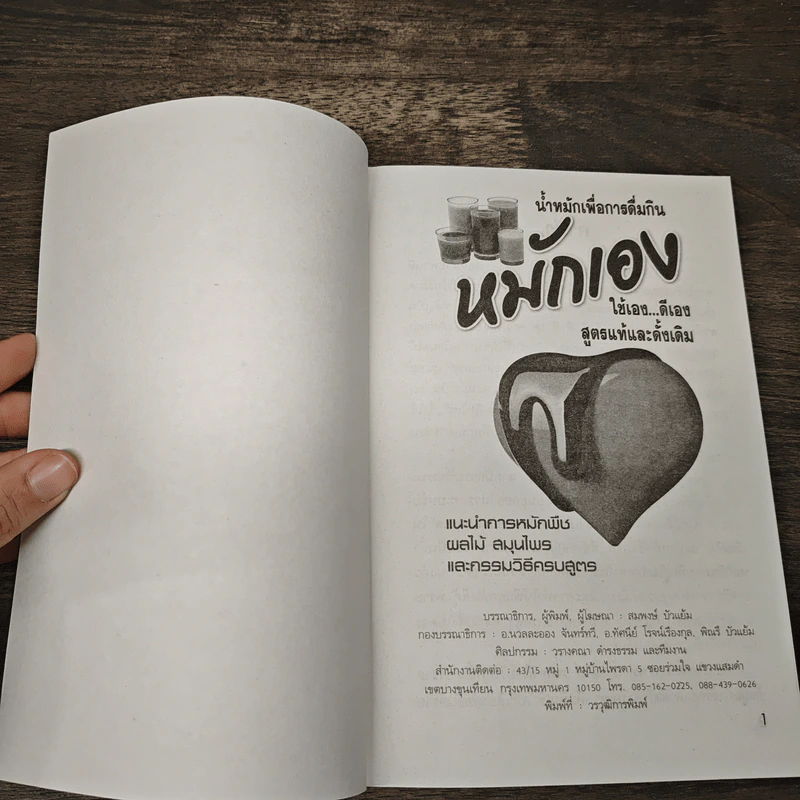 น้ำหมักเพื่อการดื่มกิน
หมักเอง
ใช้เอง...ดีเอง
สูตรแท้และดั้งเดิม
แนะนำการหมักพืช
ผลไม้ สมุนไพร
และกรรมวิธีครบสูตร
บรรณาธิการ, ผู้พิมพ์, ผู้โฆษณา : สมพงษ์ บัวแย้ม
กองบรรณาธิการ : อ.นวลละออง จันทร์ทวี, อ.ทัศนีย์ โรจน์เรืองกุล, พิณรี บัวแย้ม
ศิลปกรรม : วรางคณา ดำรงธรรม และทีมงาน
สำนักงานติดต่อ : 43/15 หมู่ 1 หมู่บ้านไพรดา 5 ซอยร่วมใจ แขวงแสมดำ
เขตบางขุนเทียน กรุงเทพมหานคร 10150 โทร. 085-162-0225, 088-439-0626
พิมพ์ที่ : วรวุฒิการพิมพ์
1